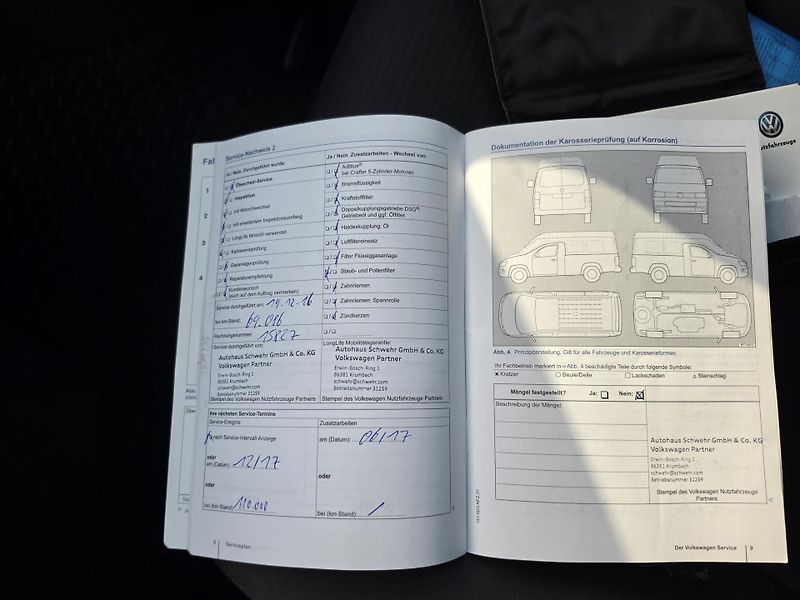 Service-Nachweis 2
Ja / Nein. Durchgeführt wurde:
Ölwechsel-Service
Inspektion
mit Motorölwechsel
mit erweitertem Inspektionsumfang
LongLife Motoröl verwendet
Karosserieprüfung
Gasanlagenprüfung
Reparaturempfehlung
Kundenwunsch
(auch auf dem Auftrag vermerken)
Service durchgeführt am: 19.12.16
bei km-Stand: 69.086
Rechnungsnummer: 15827
Service durchgeführt von:
Autohaus Schwehr GmbH & Co. KG
Volkswagen Partner
Erwin-Bosch-Ring 1
86381 Krumbach
schwehr@schwehr.com
Betriebsnummer 31259
Stempel des Volkswagen Nutzfahrzeuge Partners
Ja / Nein. Zusatzarbeiten - Wechsel von:
AdBlue®
bei Crafter 5-Zylinder-Motoren
Bremsflüssigkeit
Kraftstofffilter
Doppelkupplungsgetriebe DSG®:
Getriebeöl und ggf. Ölfilter
Haldexkupplung: Öl
Luftfiltereinsatz
Filter Flüssiggasanlage
Staub- und Pollenfilter
Zahnriemen
Zahnriemen: Spannrolle
Zündkerzen
LongLife Mobilitätsgarantie:
Autohaus Schwehr GmbH & Co. KG
Volkswagen Partner
Erwin-Bosch-Ring 1
86381 Krumbach
schwehr@schwehr.com
Betriebsnummer 31259
Stempel des Volkswagen Nutzfahrzeuge Partners
Ihre nächsten Service-Termine
Service-Ereignis
nach Service-Intervall-Anzeige
oder
am (Datum): 12/17
oder
bei (km-Stand): 110.000
Zusatzarbeiten
am (Datum): 06/17
oder
bei (km-Stand): /
8 Serviceplan
Dokumentation der Karosserieprüfung (auf Korrosion)
Abb. 4 Prinzipdarstellung. Gilt für alle Fahrzeuge und Karosserieformen.
Ihr Fachbetrieb markiert in ⇒ Abb. 4 beschädigte Teile durch folgende Symbole:
× Kratzer ○ Beule/Delle □ Lackschaden △ Steinschlag
Mängel festgestellt? Ja: Nein:
Beschreibung der Mängel:
Autohaus Schwehr GmbH & Co. KG
Volkswagen Partner
Erwin-Bosch-Ring 1
86381 Krumbach
schwehr@schwehr.com
Betriebsnummer 31259
Stempel des Volkswagen Nutzfahrzeuge
Partners
Der Volkswagen Service 9